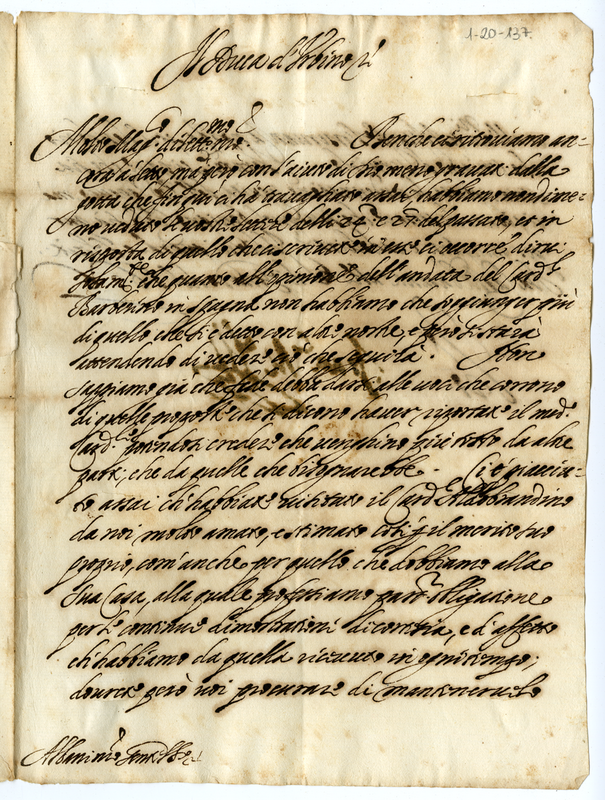 1-20-137.
Il Duca d'Urbino &c.
Molto Mag.co diletti.mo n.ro Benche ci ritroviamo an-
cora à letto, ma però con l'aiuto di Dio meno gravati dalla
gotta che fin qui ci hà travagliato, habbiamo nondime-
no veduto le vostre lettere delli 24 e 27 del passato, et in
risposta di quello che ci scrivete in esse ci occorre dirvi
che quanto all' dell'andata del Card.l
Barberino in Spagna non habbiamo che soggiunger più
di quello che si è detto con altre nostre, e però si starà
attendendo di vedere ciò che seguirà. Non
sappiamo già che fede debba darsi alle voci che corrono
di quelle proposte che si dicono haver riportate il med.o
Card.le facendosi credere che venghino più tosto da altre
parti, che da quelle che bisognarebbe. Ci è piaciu-
to assai ch'habbiate visitato il Card.le Aldobrandino
da noi molto amato, e stimato così per il merito suo
proprio, com'anche per quello che dobbiamo alla
sua Casa, alla quale professiamo part.re obligatione
per le continue dimostrationi di cortesia, e d'affetto
ch'habbiamo da quella ricevuto in ogni tempo;
dovrete però voi procurare di mantenervelo